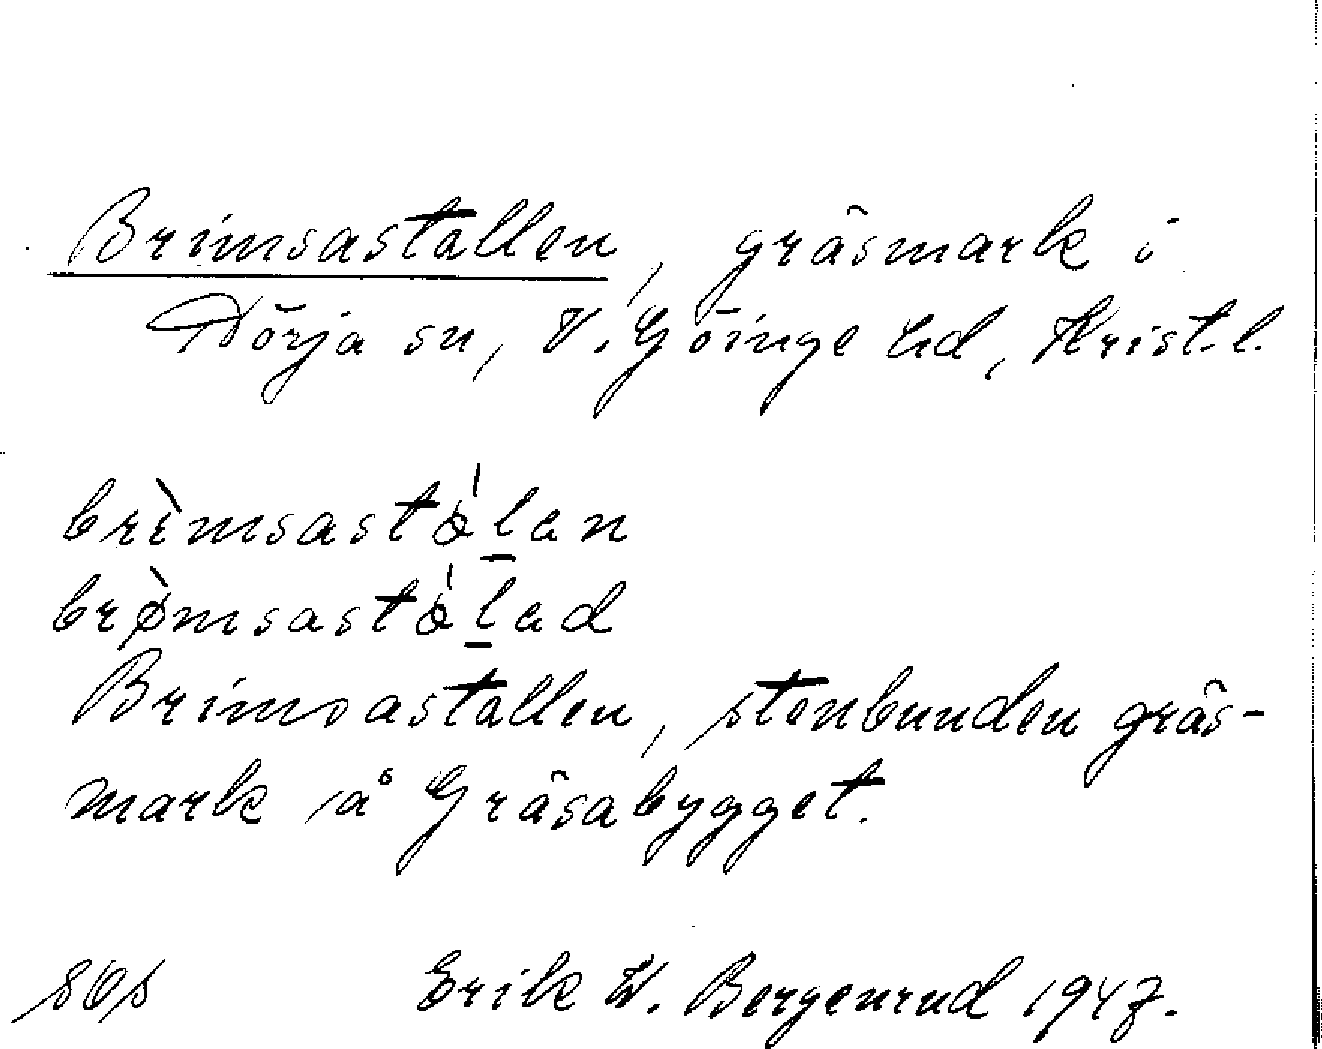 Brimsastallen, gräsmark i
Dörja sn, V. Göinge hd, Krist. l.
brìmsastálan
brø̀msastálad
Brimsastallen, stenbunden gräs-
mark å Gräsabygget.
Erik W. Bergenrud 1947.